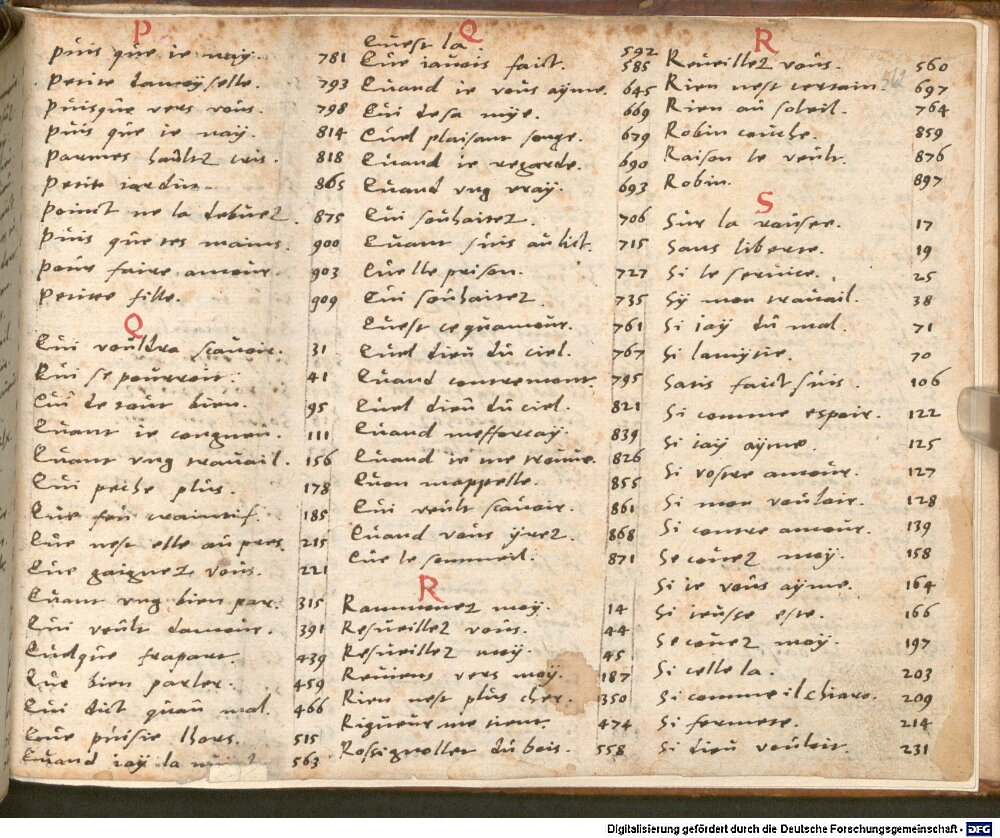 P
Puis que ie nay. 781
Petite damoyselle. 793
Puisque vers vous. 798
Puis que ie nay. 814
Parmes haultz cris. 818
Petit iardin. 865
Poinct ne la debuez. 875
Puis que tes mains. 900
Pour faire amour. 903
Petite fille. 909
Q
Qui vouldra scauoir. 31
Qui se pourroit. 41
Qui de tout bien. 95
Quant ie congneu. 111
Quant vng trauail. 156
Qui peche plus. 178
Que feu craintif. 185
Que nest elle au pres. 215
Que gaignez vous. 221
Quant vng bien par. 315
Qui veult damour. 391
Quelque frapart. 439
Que bien parler. 459
Qui dict quau mal. 466
Que puisie lhors. 515
Quand iay la 563
Q
Quest la 592
Que iauois faict. 585
Quand ie vous ayme. 645
Qui de sa mye. 669
Quel plaisant songe. 679
Quand ie regarde. 690
Quand vng vray. 693
Qui souhaitez. 706
Quant suis au lict. 715
Quelle prison. 727
Qui souhaitez. 735
Quest ce quamour. 761
Quel dieu du ciel. 767
Quand contremont. 795
Quel dieu du ciel. 821
Quand mefforcay. 839
Quand ie me trouue. 826
Quon mappelle. 855
Qui veult scauoir. 861
Quand vous yrez. 868
Que le sommeil. 871
R
Rammenez moy. 14
Resueillez vous. 44
Resueillez moy. 45
Reuiens vers moy. 187
Rien nest plus cher. 350
Rigueur me tient. 474
Rossignollet du bois. 558
R
Reueillez vous. 560
Rien nest certain 697
Rien au soleil. 764
Robin couche. 859
Raison le veult. 876
Robin. 897
S
Sur la rousee. 17
Sans liberte. 19
Si le seruice. 25
Sy mon trauail. 38
Si iay du mal. 71
Si lamytie. 70
Satis faict suis. 106
Si comme espoir. 122
Si iay ayme. 125
Si vostre amour. 127
Si mon vouloir. 128
Si contre amour. 139
Secouez moy. 158
Si ie vous ayme. 164
Si ieusse este. 166
Secouez moy. 197
Si celle la. 203
Si comme il chiaro. 209
Si fermete. 214
Si dieu vouloit. 231
Digitalisierung gefördert durch die Deutsche Forschungsgemeinschaft - DFG